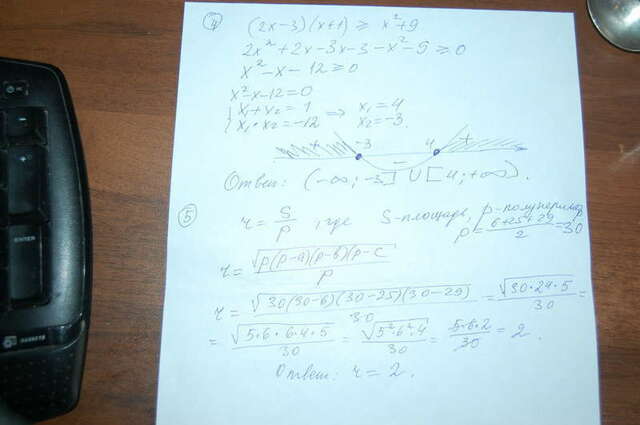 ④ (2x-3)(x+1) ≥ x²+9
2x²+2x-3x-3-x²-9 ≥ 0
x²-x-12 ≥ 0
x²-x-12=0
{ x₁+x₂=1 ⇒ x₁=4
{ x₁·x₂=-12 x₂=-3.
+ -3 - 4 +
Ответ: (-∞; -3] ∪ [4; +∞).
⑤ r = S/p, где S-площадь, p-полупериметр
p = (6+25+29)/2 = 30
r = √(p(p-a)(p-b)(p-c)/p
r = √(30(30-6)(30-25)(30-29))/30 = √(30·24·5)/30 =
= √(5·6·6·4·5)/30 = √(5²·6²·4)/30 = (5·6·2)/30 = 2.
Ответ: r = 2.
ENTER